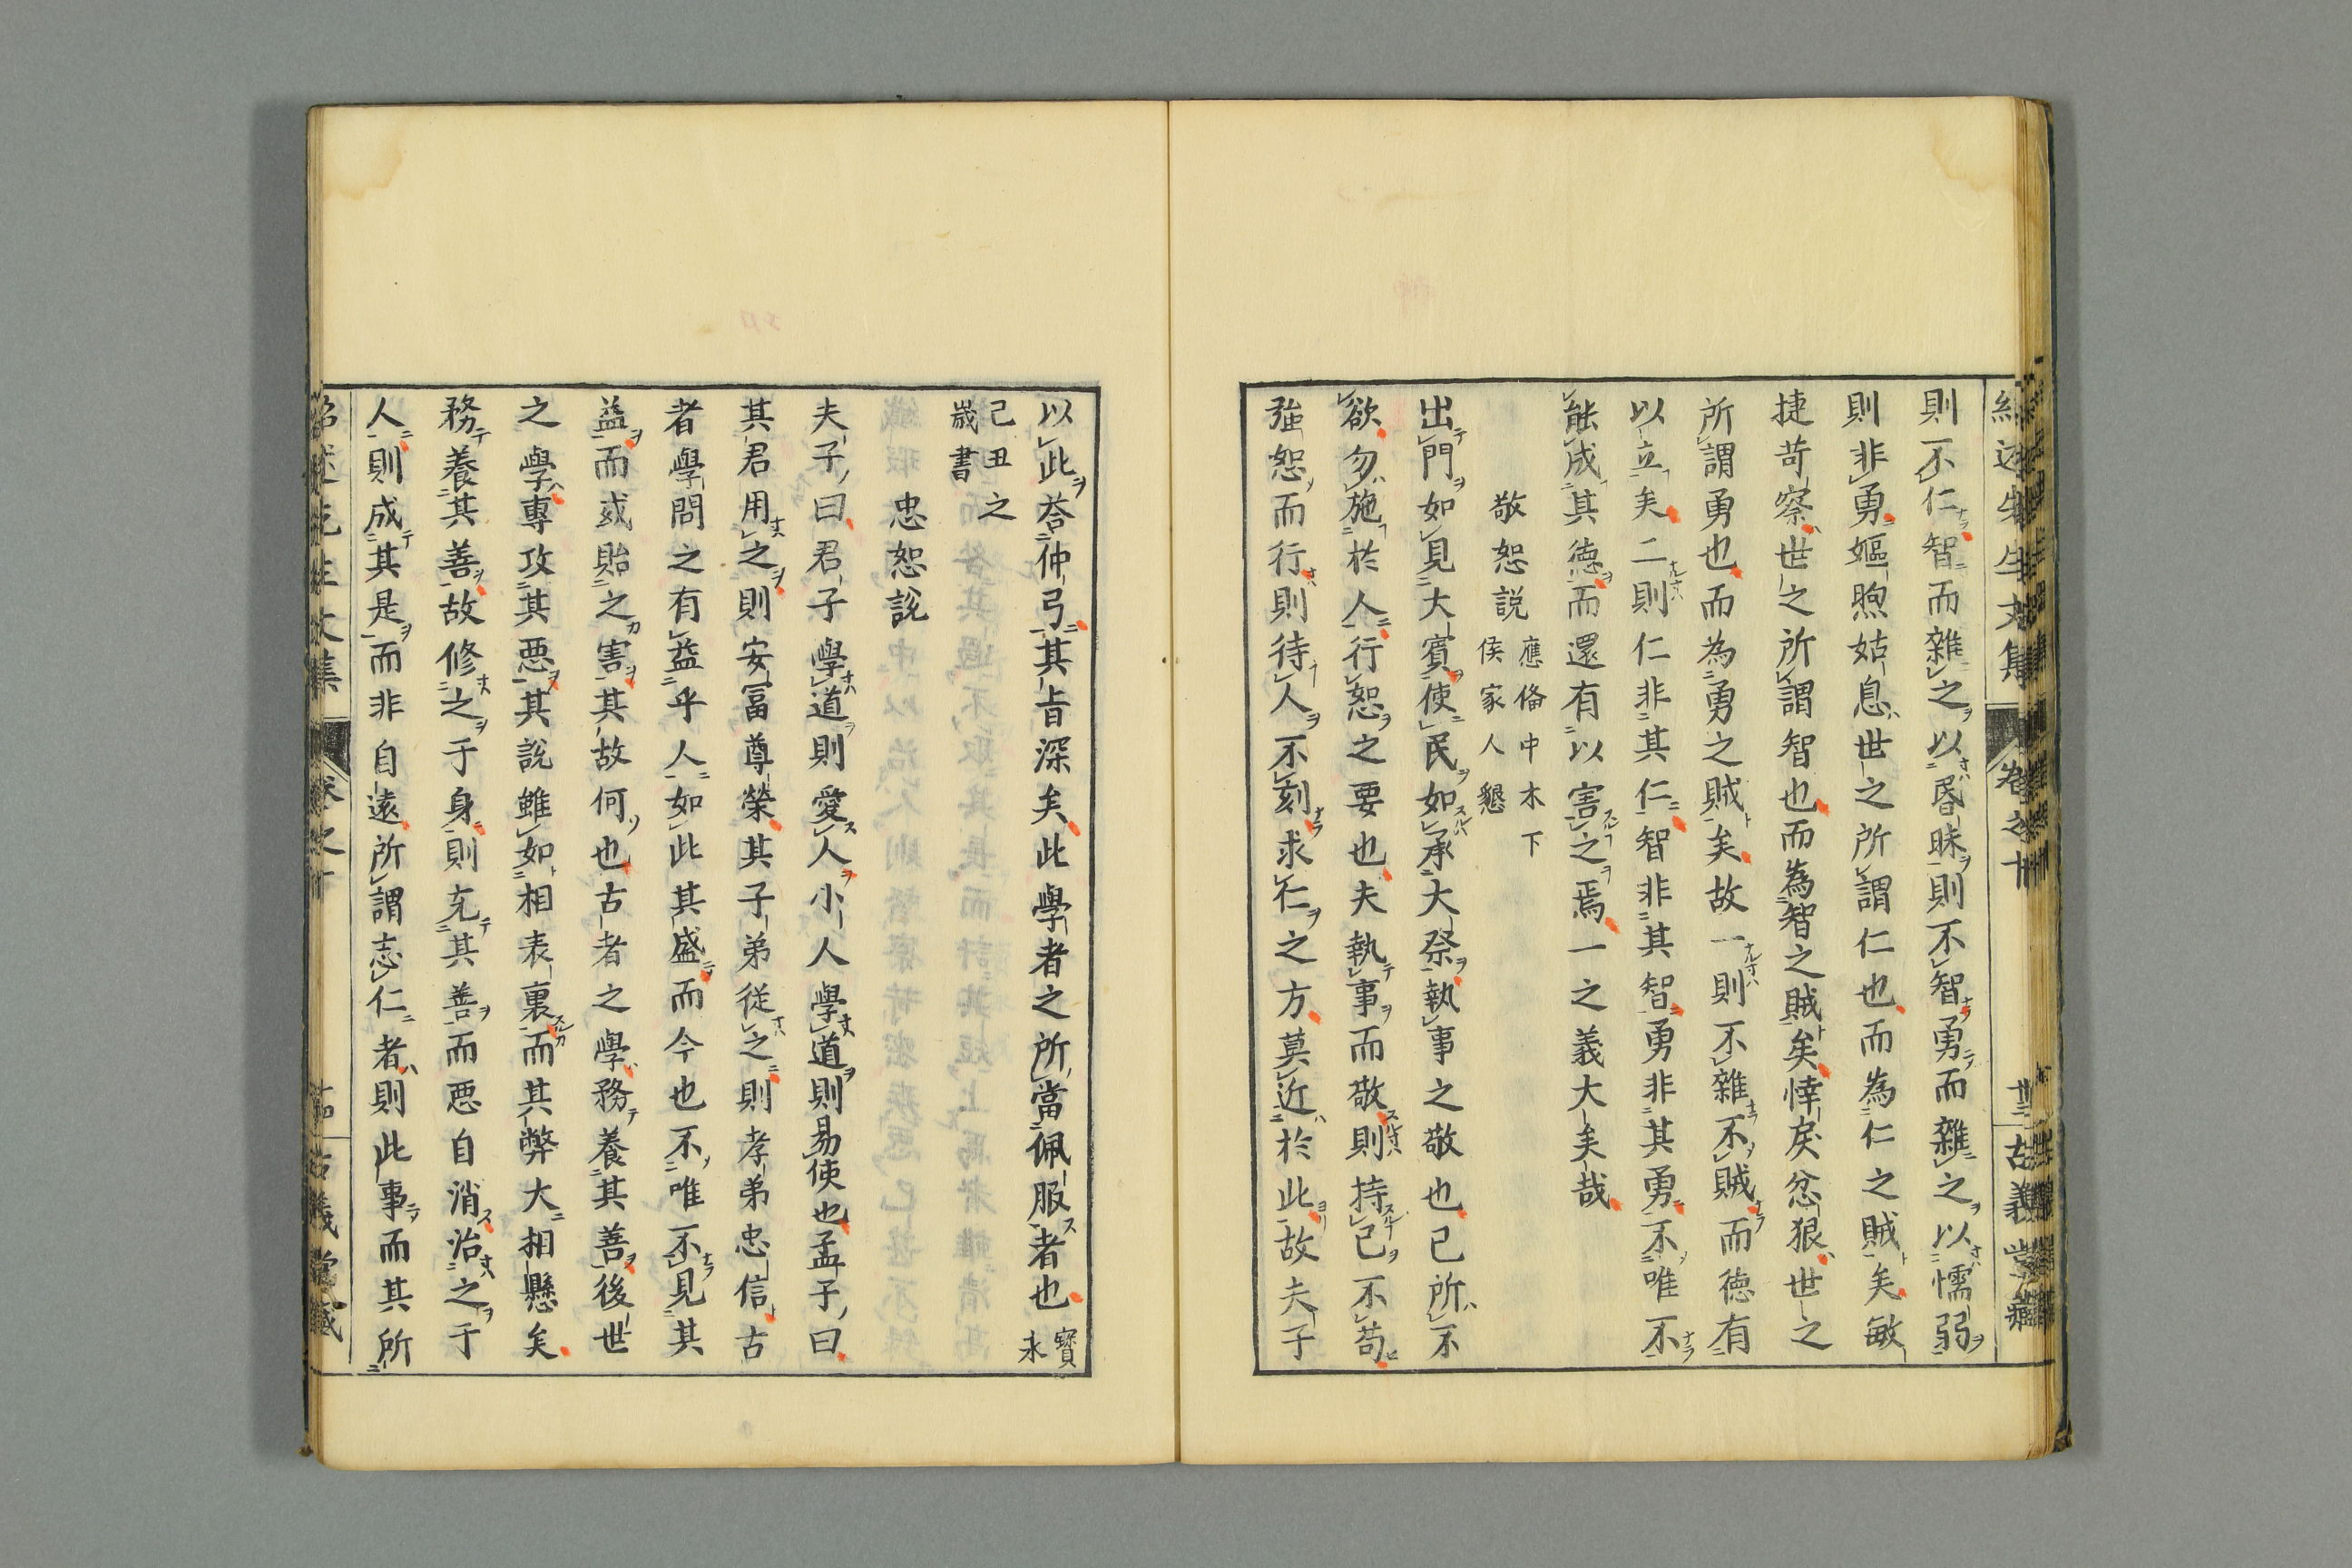 則不仁智而雜之以昏昧則不智勇而雜之以懦弱
則非勇嫗煦姑息世之所謂仁也而為仁之賊矣敏
捷苛察世之所謂智也而為智之賊矣悻戾忿狠世之
所謂勇也而為勇之賊矣故一則不雜不賊而徳有
以立矣二則仁非其仁智非其智勇非其勇不唯不
能成其徳而還有以害之焉一之義大矣哉
敬恕説
應俻中木下
侯家人懇
出門如見大賓使民如承大祭執事之敬也已所不
欲勿施於人行恕之要也夫執事而敬則持已不苟
強恕而行則待人不刻求仁之方莫近於此故夫子
以此荅仲弓其旨深矣此學者之所當佩服者也
寳永
己丑之
歲書
忠恕說
夫子曰君子學道則愛人小人學道則易使也孟子曰
其君用之則安冨尊榮其子弟従之則孝弟忠信古
者學問之有益乎人如此其盛而今也不唯不見其
益而或貽之害其故何也古者之學務養其善後世
之學專攻其悪其說雖如相表裏而其弊大相懸矣
務養其善故修之于身則充其善而悪自消治之于
人則成其是而非自遠所謂志仁者則此事而其所